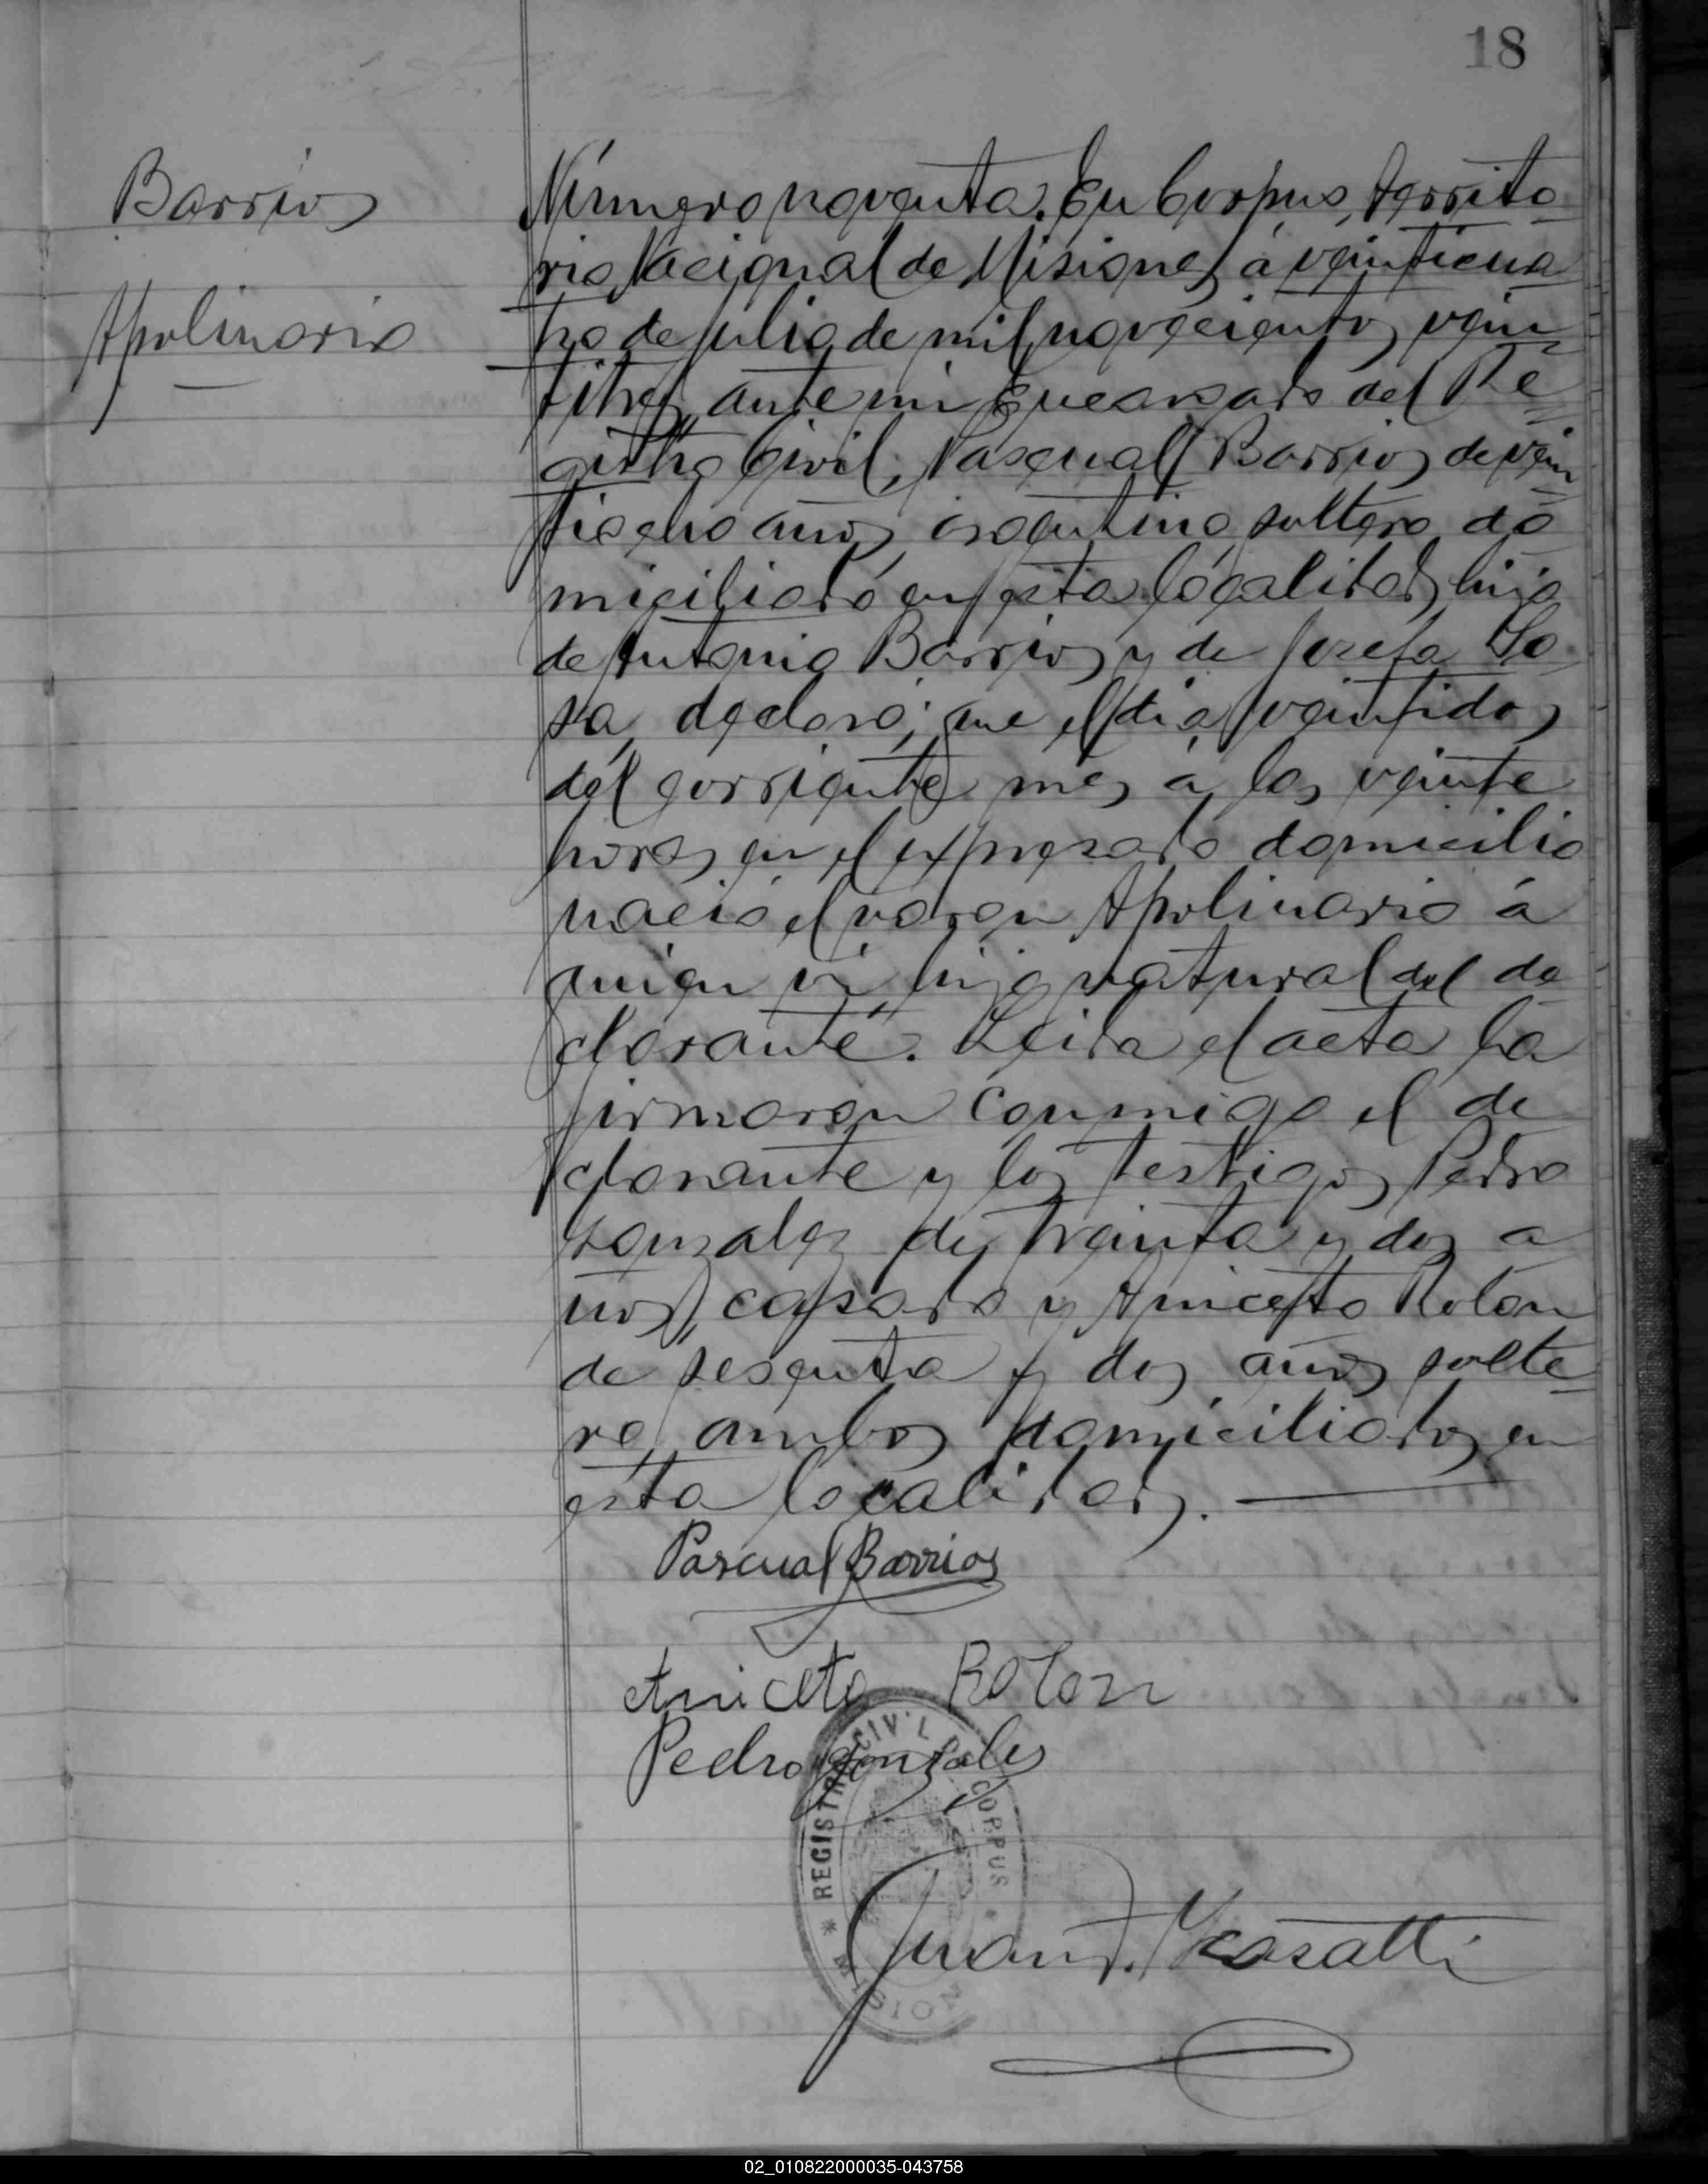 18
Barrios
Apolinario
Número noventa. En Corpus, Territo
rio Nacional de Misiones, á veinticua
tro de julio de mil novecientos vein
titres, ante mi Encargado del Re
gistro Civil, Pascual Barrios de vein
tiocho años, argentino, soltero, do
miciliado en esta localidad, hijo
de Antonio Barrios y de Josefa So
sa, declaró; que el dia veintidos
del corriente mes á las veinte
horas en el expresado domicilio
nació el varon Apolinario á
quien vi, hijo natural del de
clarante. Leida el acta la
firmaron conmigo el de
clarante y los testigos Pedro
Gonzalez de treinta y dos a
ños, casado y Aniceto Rolon
de sesenta y dos años solte
ro, ambos domiciliados en
esta localidad.
Pascual Barrios
Aniceto Rolon
Pedro Gonzales
REGISTRO CIVIL DE CORPUS
* MISIONES *
Juan
02_010822000035-043758